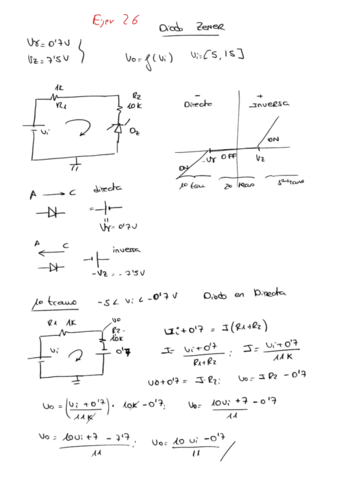 Ejer 26
Diodo Zener
Vγ = 0'7V
Vz = 7'5V
Vo = f(Vi) Vi = [5, 15]
1K
R1
R2
10K
Dz
Vi
- +
Directa Inversa
ON -Vγ OFF Vz ON
1º tramo 2º tramo
A → C directa
Vγ = 0'7V
A ← C inversa
-Vz = -7'5V
1º tramo -5 < Vi < -0'7V Diodo en Directa
R1 1K
Vo
R2
10K
Vi
0'7
Vi + 0'7 = I(R1+R2)
I = Vi+0'7 / R1+R2 ; I = Vi+0'7 / 11K
Vo + 0'7 = I·R2 ; Vo = I R2 - 0'7
Vo = (Vi+0'7 / 11K) · 10K - 0'7 ; Vo = 10Vi + 7 / 11 - 0'7
Vo = 10Vi + 7 - 7'7 / 11 ; Vo = 10 Vi - 0'7 / 11